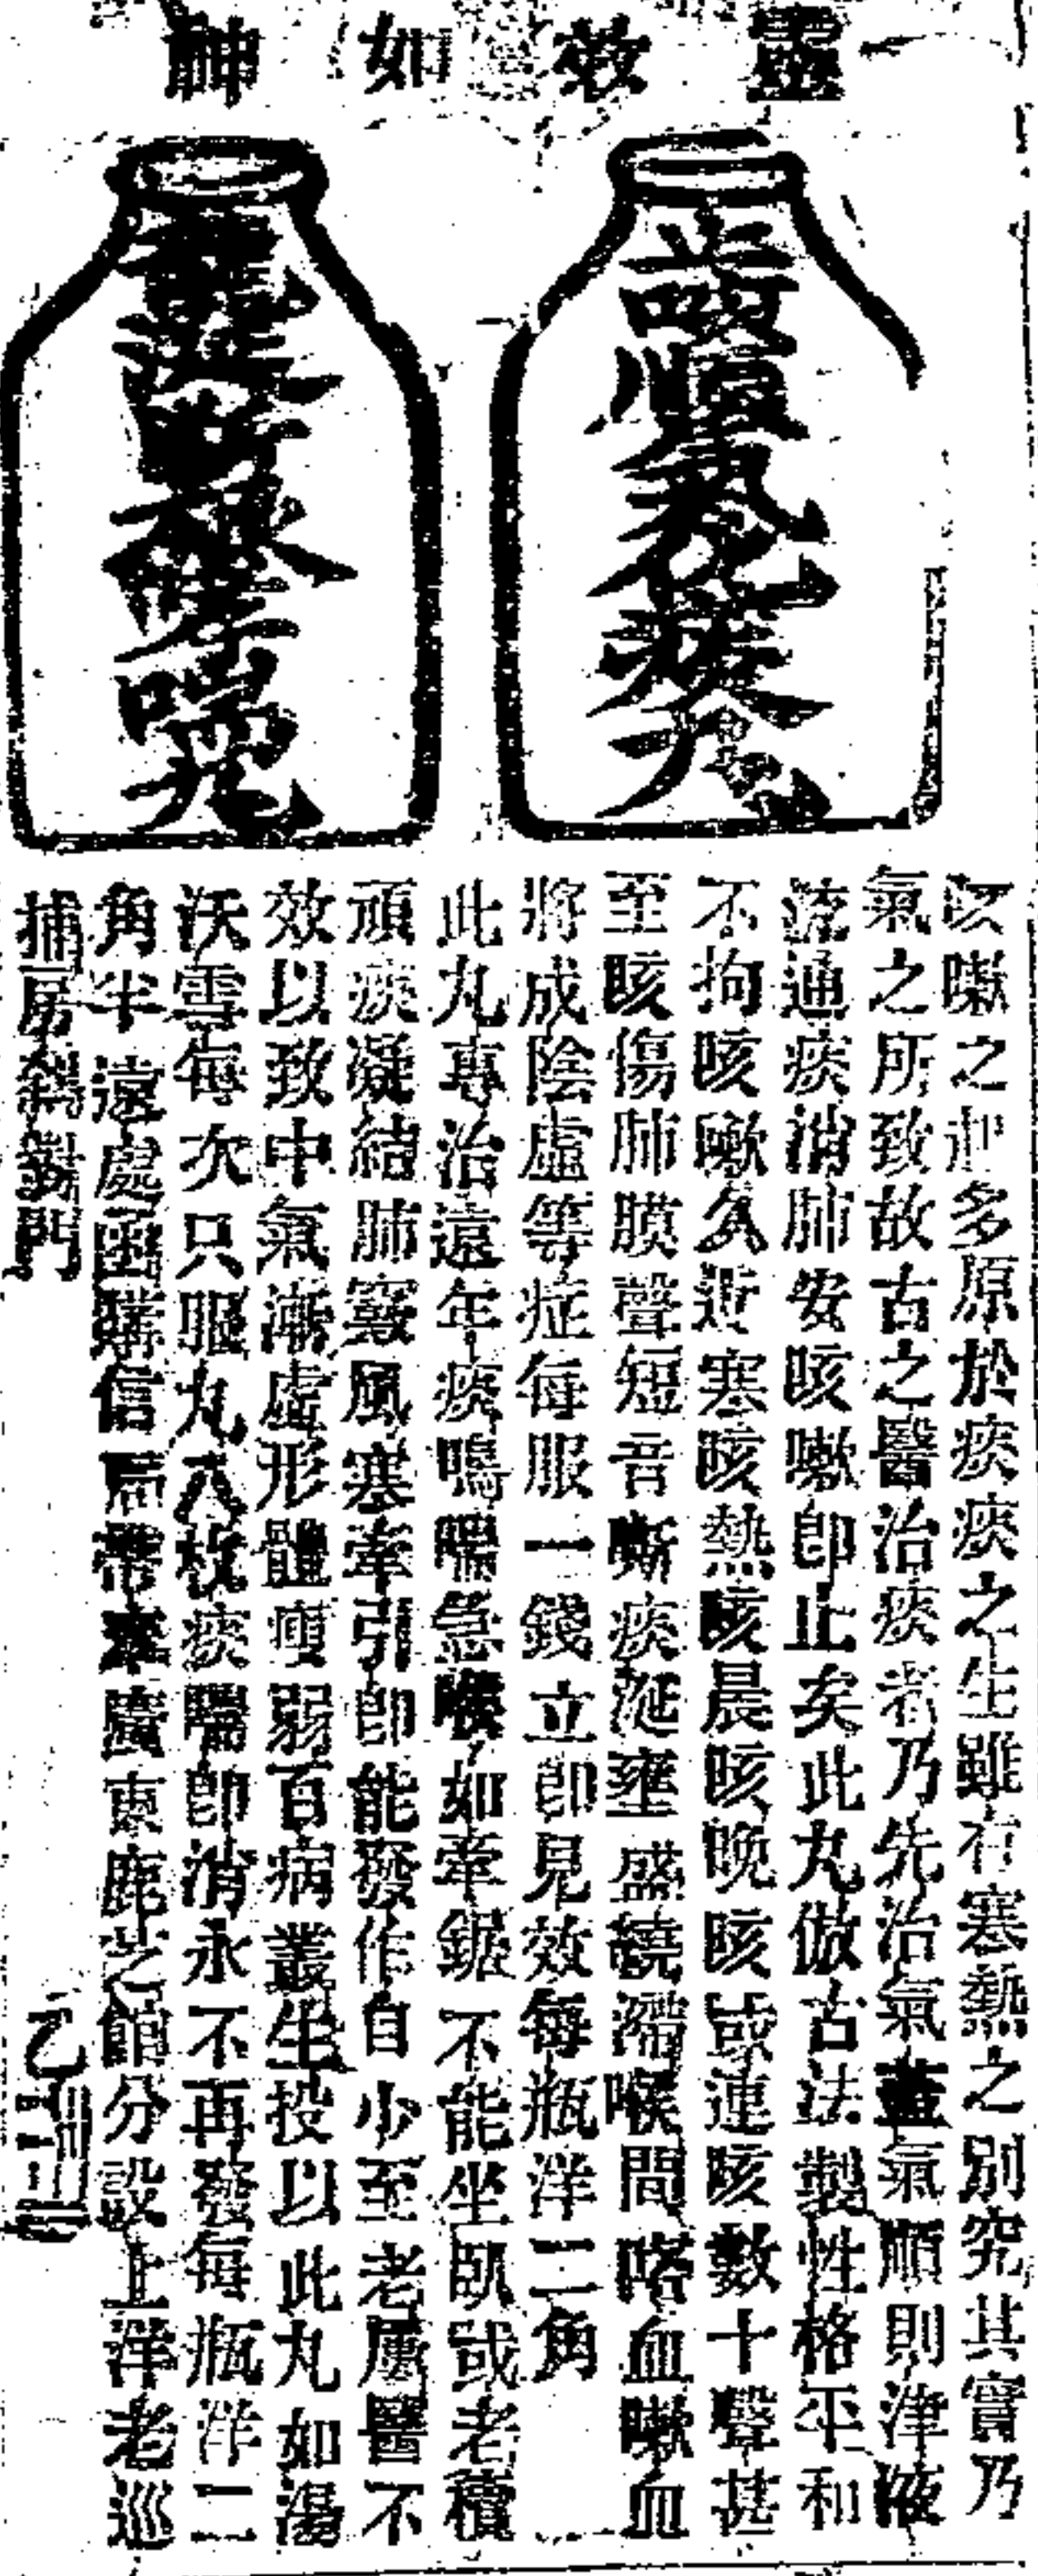 靈效如神
止咳順氣化痰丸
龍涎斷根哮喘丸
咳嗽之起多原於痰痰之生雖有寒熱之別究其實乃
氣之所致故古之醫治痰者乃先治氣蓋氣順則津液
流通痰消肺安咳嗽即止矣此丸倣古法製性格平和
不拘咳嗽久近寒咳熱咳晨咳晚咳或連咳數十聲甚
至咳傷肺膜聲短音嘶痰涎壅盛繞滯喉間咯血嗽血
將成陰虛等症每服一錢立即見效每瓶洋二角
此丸專治遠年痰鳴喘急喉如牽鋸不能坐臥或老積
頑痰凝結肺竅風寒牽引即能發作自少至老屢醫不
效以致中氣漸虛形體瘦弱百病叢生投以此丸如湯
沃雪每次只服丸八枚痰喘即消永不再發每瓶洋二
角半遠處函購信局帶奉廣東鹿芝館分設上洋老巡
捕房斜對門